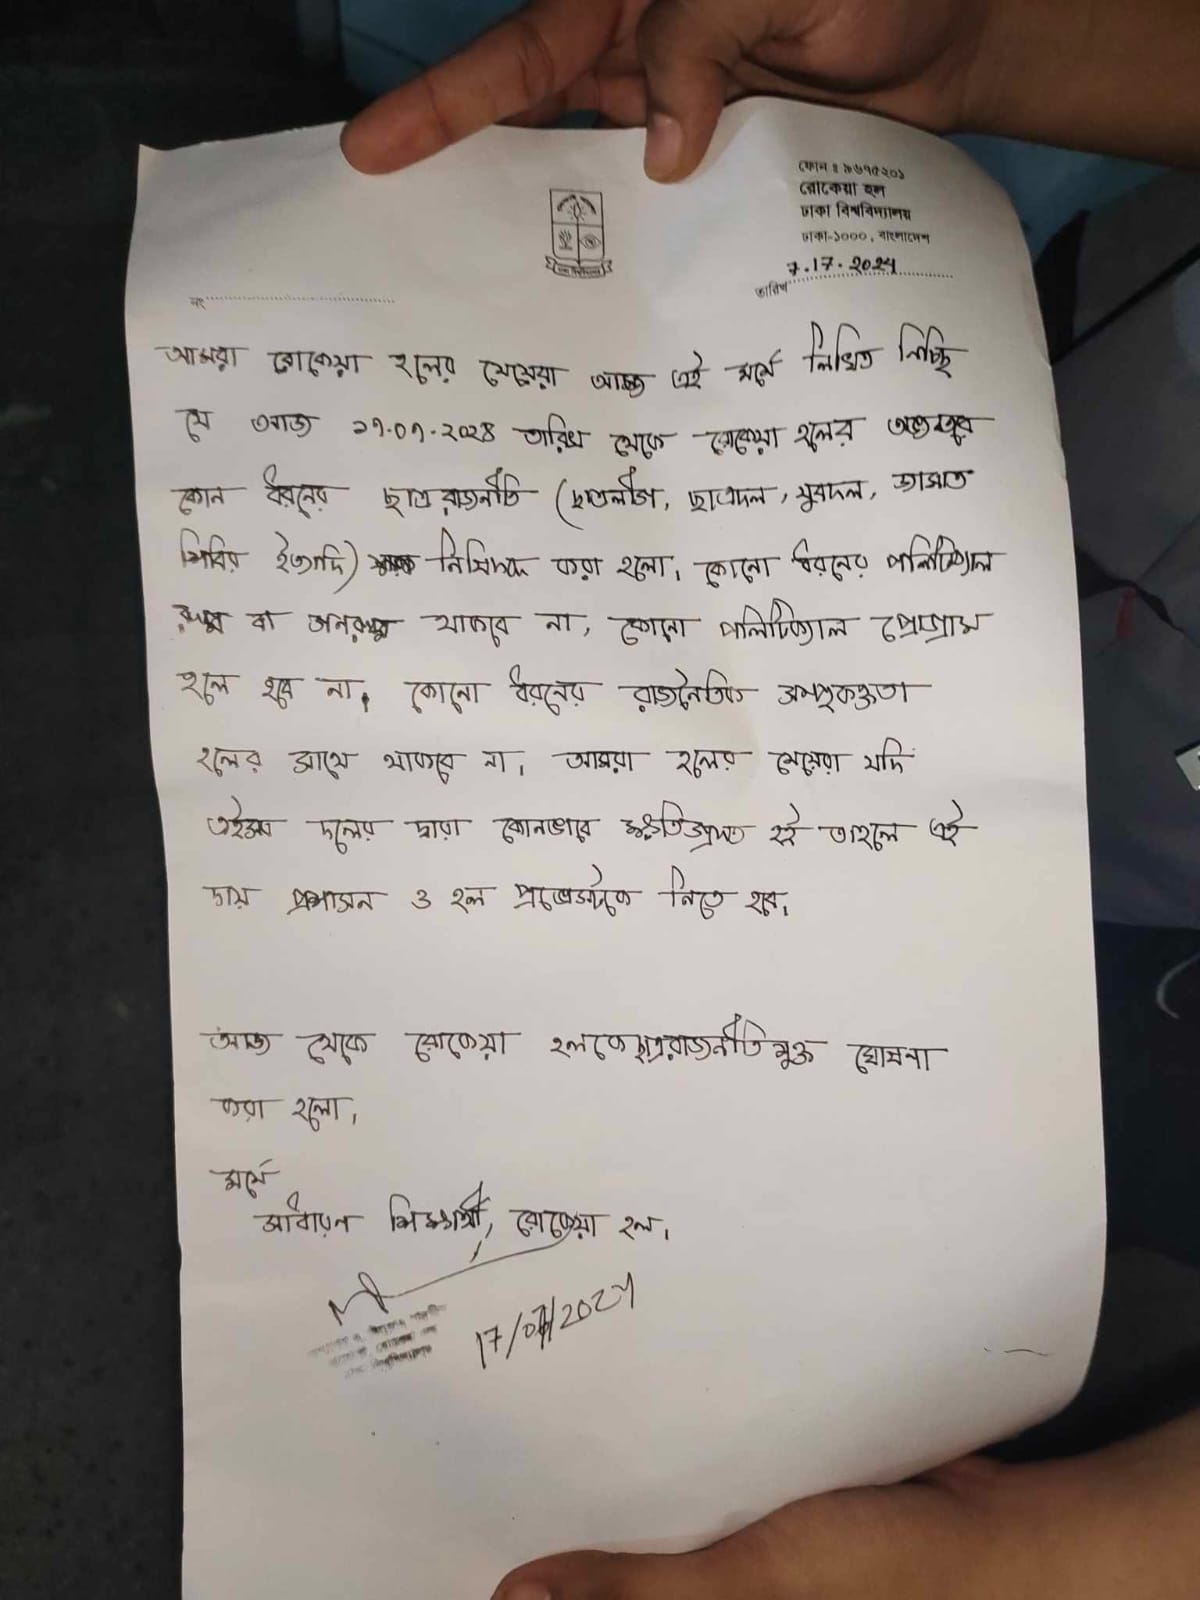 ফোন : ৯৬৭৫২০১
রোকেয়া হল
ঢাকা বিশ্ববিদ্যালয়
ঢাকা-১০০০, বাংলাদেশ
তারিখ 7.17.2024
নং
আমরা রোকেয়া হলের মেয়েরা আজ এই মর্মে লিখিত নিচ্ছি
যে আজ ১৭.০৭.২০২৪ তারিখ থেকে রোকেয়া হলের অভ্যন্তরে
কোন ধরনের ছাত্ররাজনীতি (ছাত্রলীগ, ছাত্রদল, যুবদল, জামাত
শিবির ইত্যাদি) নিসিদ্ধ করা হলো। কোনো ধরনের পলিটিক্যাল
রুম বা গনরুম থাকবে না, কোনো পলিটিক্যাল প্রোগ্রাম
হলে হবে না। কোনো ধরনের রাজনৈতিক সম্পৃক্ততা
হলের সাথে থাকবে না। আমরা হলের মেয়েরা যদি
এইসব দলের দ্বারা কোনভাবে ক্ষতিগ্রস্ত হই তাহলে এই
দায় প্রশাসন ও হল প্রভোস্টকে নিতে হবে।
আজ থেকে রোকেয়া হলকে ছাত্ররাজনীতি মুক্ত ঘোষনা
করা হলো।
মর্মে
সাধারন শিক্ষার্থী, রোকেয়া হল।
17/07/2024